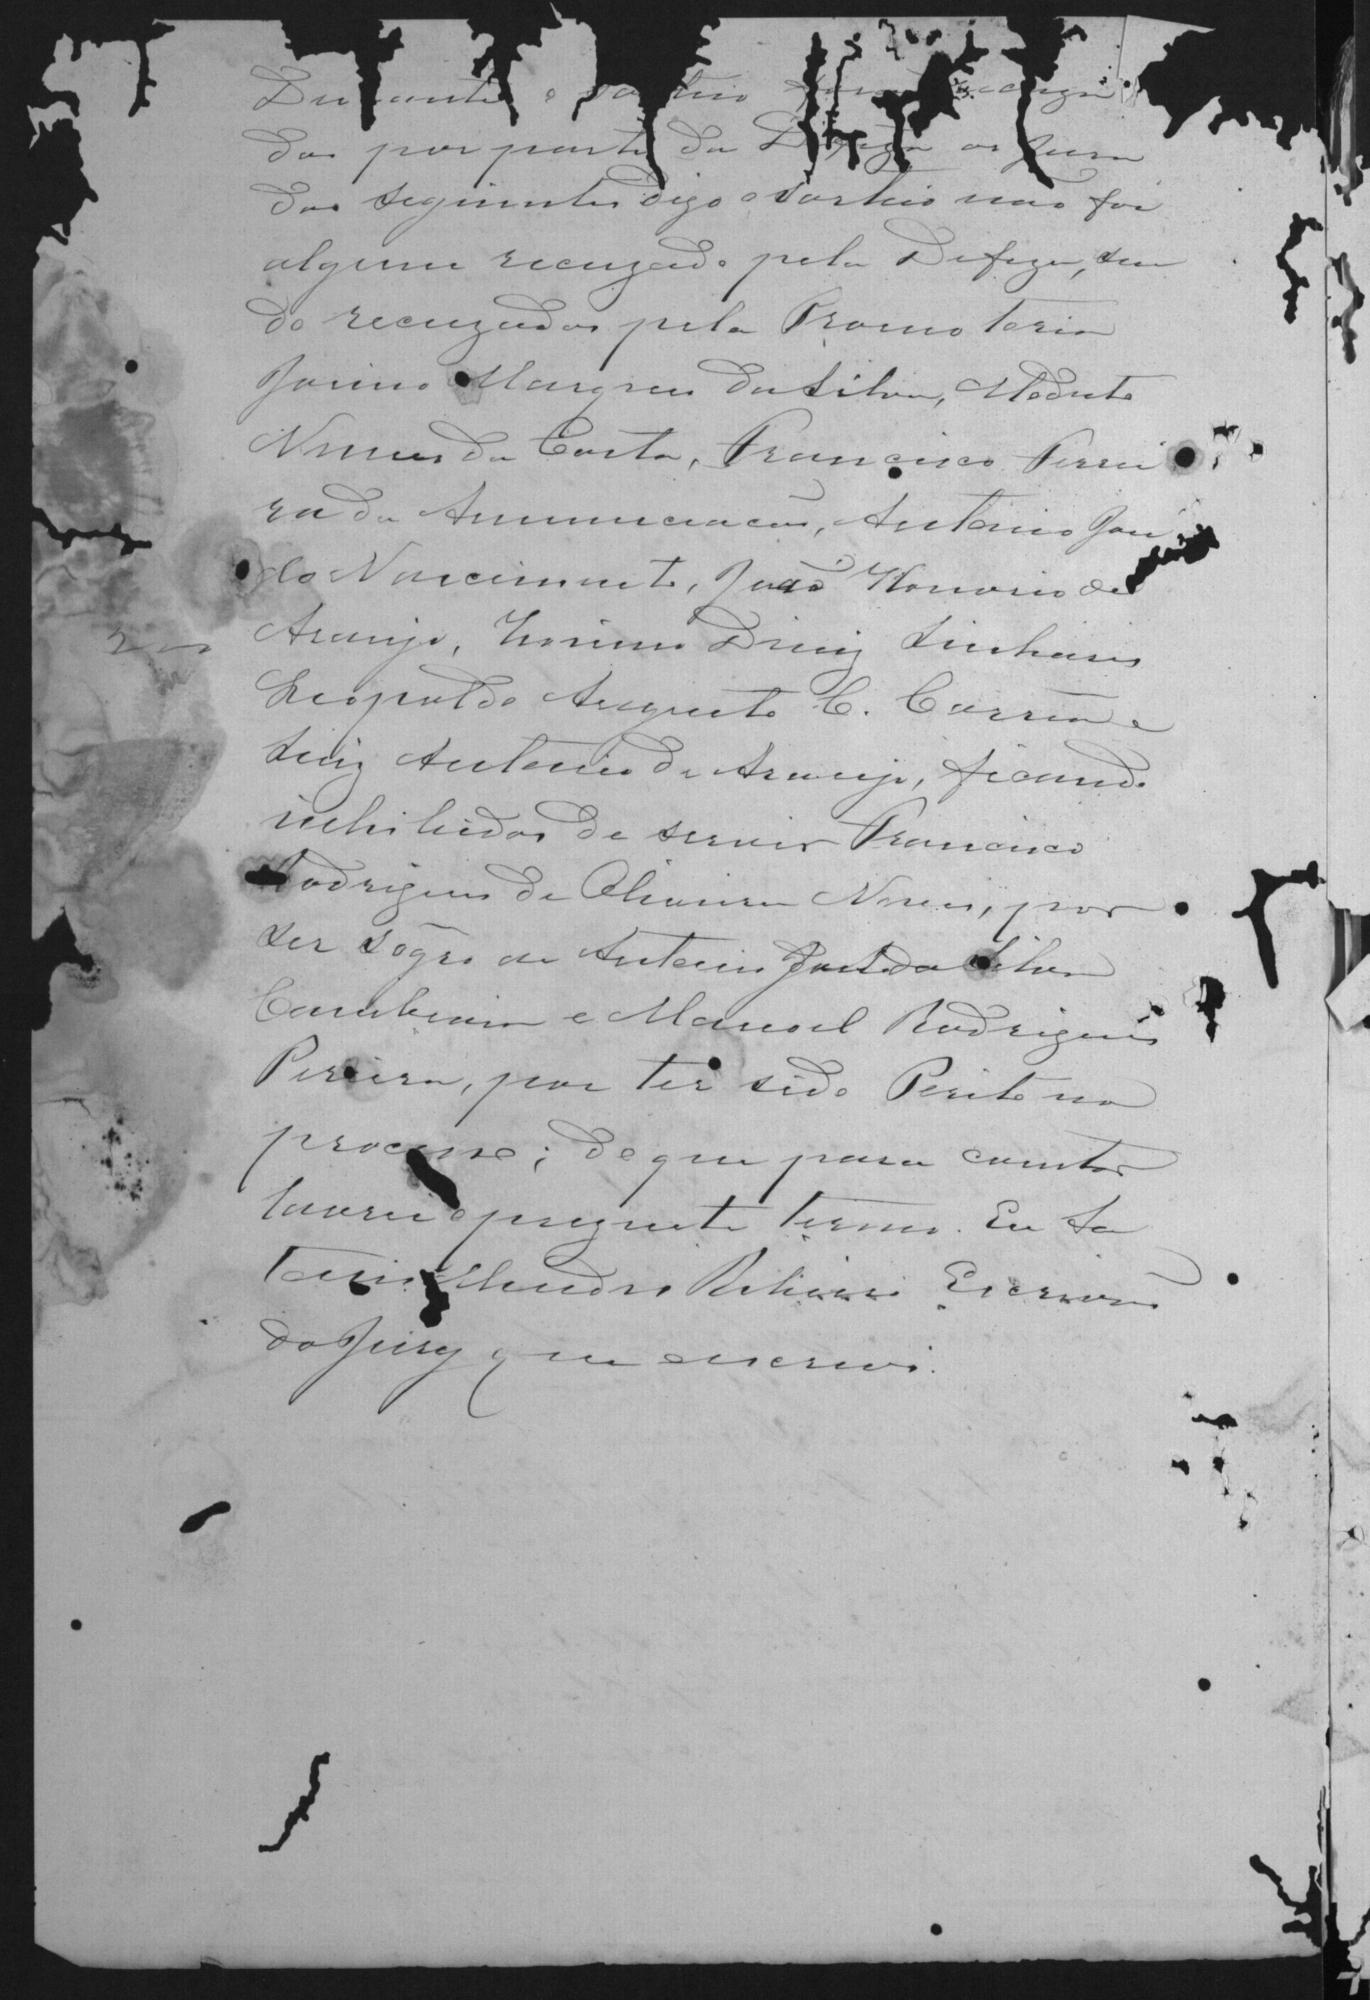 Durante o sorteio forão recuza
dos por parte da Defeza os Jura
dos seguintes digo o sorteio não foi
algum recuzado pela Defeza, sen
do recuzados pela Promotoria
Jovino Marques da Silva, Modesto
Nunes da Costa, Francisco Perei
ra da Annunciacão, Antonio José
do Nascimento, João Honorio de
Araujo, Diniz Linhares
Leopoldo Augusto C. Corrêa e
Luiz Antonio de Araujo, ficando
inhibidos de servir Francisco
Rodrigues de Oliveira Neves, por
ser sôgro de Antonio José da Silva
Carnbeiro e Manoel Rodrigues
Pereira, por ter sido Perito no
processo; do que para constar
lavrei o prezente termo. Eu
Mendes Ribeiro Escrivão
do Jury que escrevi.